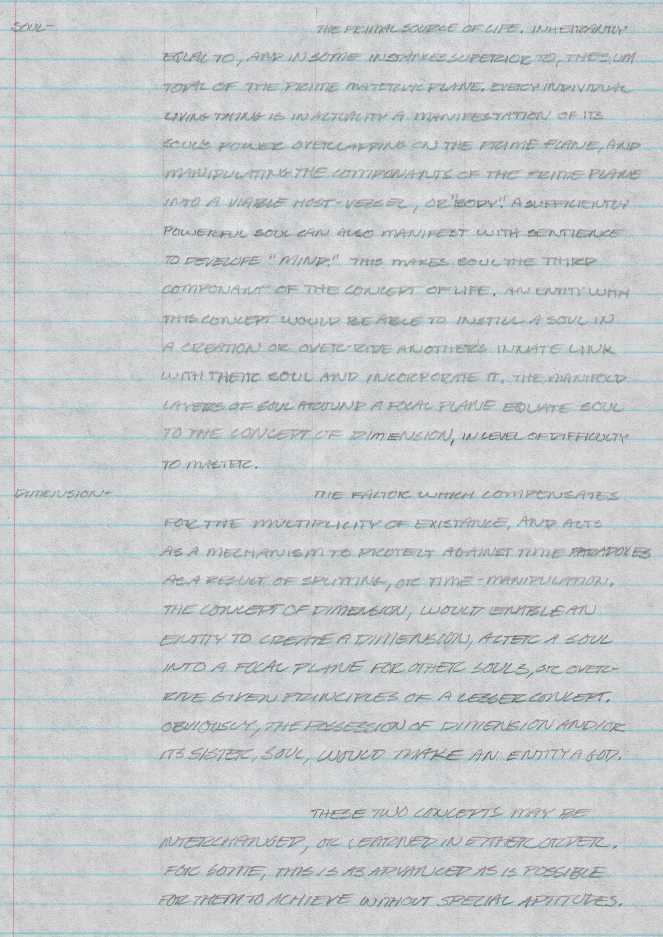 SOUL- THE PRIMAL SOURCE OF LIFE. INHERRANTLY
EQUAL TO, AND IN SOME INSTANCES SUPERIOR TO, THE SUM
TOTAL OF THE PRIME MATERIAL PLANE. EVERY INDIVIDUAL
LIVING THING IS IN ACTUALITY A MANIFESTATION OF ITS
SOUL'S POWER OVERLAPPING ON THE PRIME PLANE, AND
MANIPULATING THE COMPONANTS OF THE PRIME PLANE
INTO A VIABLE HOST-VESSEL, OR "BODY". A SUFFICIENTLY
POWERFUL SOUL CAN ALSO MANIFEST WITH SENTIENCE
TO DEVELOPE "MIND." THIS MAKES SOUL THE THIRD
COMPONANT OF THE CONCEPT OF LIFE. AN ENTITY WITH
THIS CONCEPT WOULD BE ABLE TO INSTILL A SOUL IN
A CREATION OR OVER-RIDE ANOTHER'S INNATE LINK
WITH THEIR SOUL AND INCORPORATE IT. THE MANIFOLD
LAYERS OF SOUL AROUND A FOCAL PLANE EQUATE SOUL
TO THE CONCEPT OF DIMENSION, IN LEVEL OF DIFFICULTY
TO MASTER.
DIMENSION- THE FACTOR WHICH COMPENSATES
FOR THE MULTIPLICITY OF EXISTANCE, AND ACTS
AS A MECHANISM TO PROTECT AGAINST TIME PARADOXES
AS A RESULT OF SPLITTING, OR TIME-MANIPULATION.
THE CONCEPT OF DIMENSION, WOULD ENABLE AN
ENTITY TO CREATE A DIMENSION, ALTER A SOUL
INTO A FOCAL PLANE FOR OTHER SOULS, OR OVER-
RIDE GIVEN PRINCIPLES OF A LESSER CONCEPT.
OBVIOUSLY, THE POSSESSION OF DIMENSION AND/OR
ITS SISTER, SOUL, WOULD MAKE AN ENTITY A GOD.
THESE TWO CONCEPTS MAY BE
INTERCHANGED, OR LEARNED IN EITHER ORDER.
FOR SOME, THIS IS AS ADVANCED AS IS POSSIBLE
FOR THEM TO ACHIEVE WITHOUT SPECIAL APTITUDES.